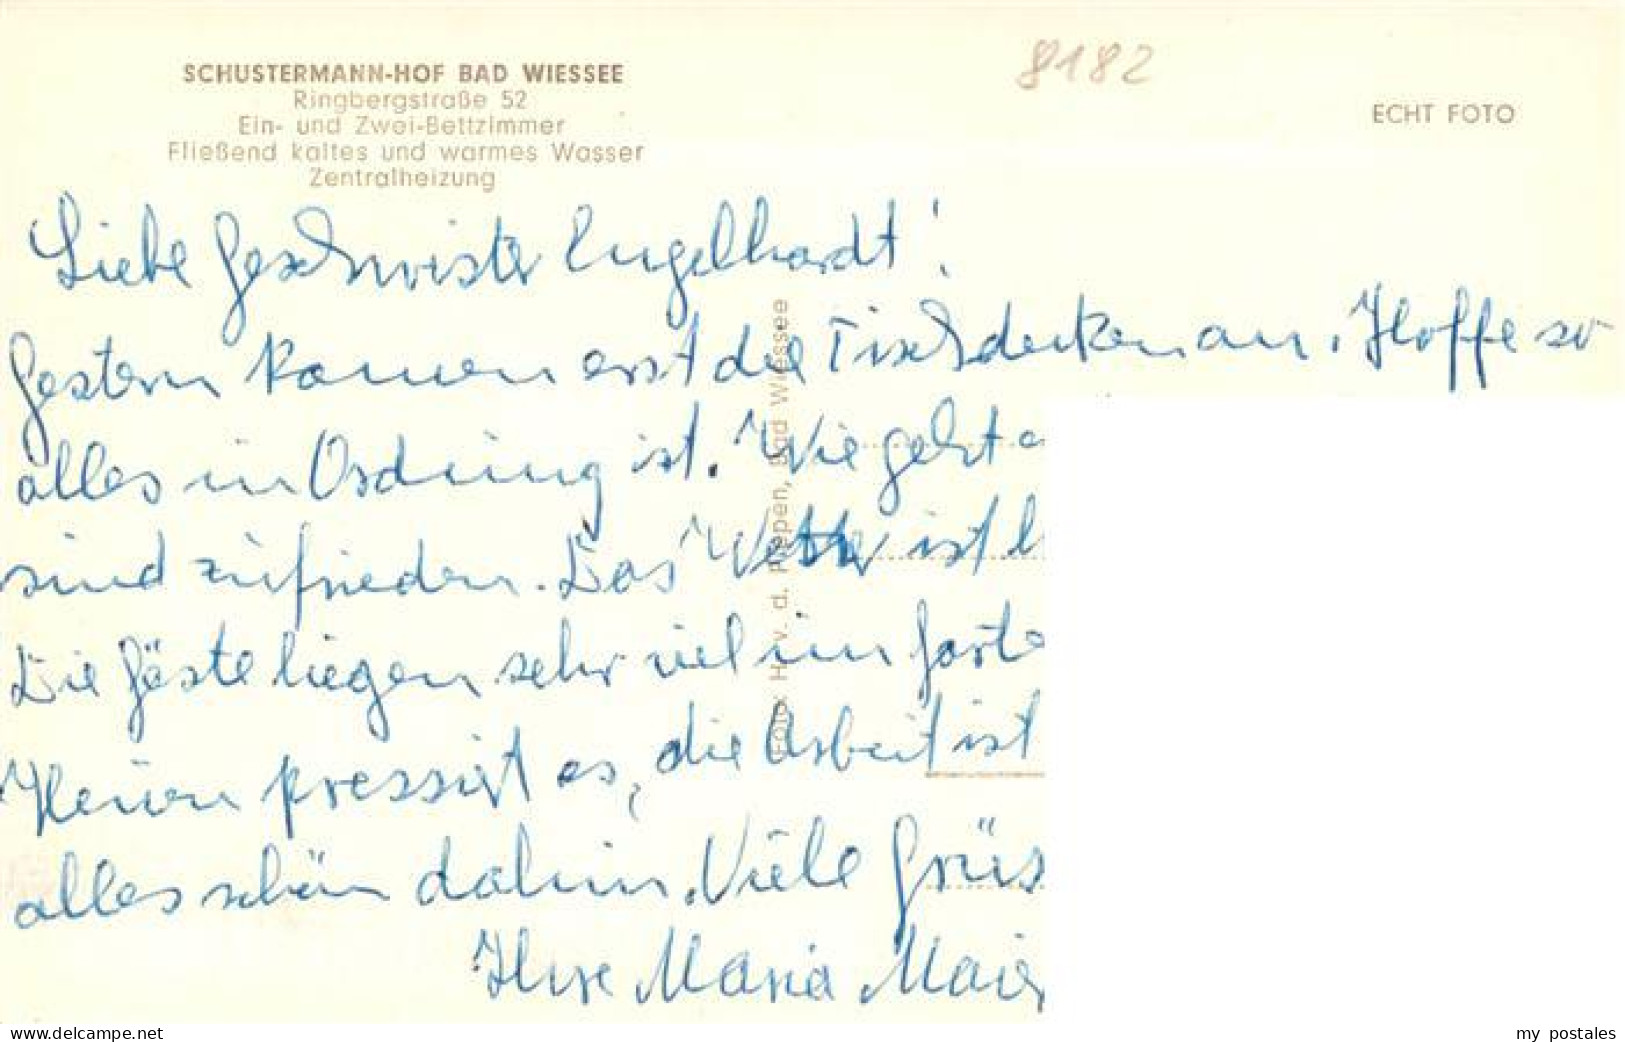 SCHUSTERMANN-HOF BAD WIESSEE
Ringbergstraße 52
Ein- und Zwei-Bettzimmer
Fließend kaltes und warmes Wasser
Zentralheizung
8182
ECHT FOTO
Liebe Geschwister Engelhardt!
Gestern kamen erst die Tischdecken an. Hoffe so
alles in Ordnung ist. Wie geht
sind zufrieden. Das Wetter ist
Die Gäste liegen sehr viel im Garte
pressiert es, die Arbeit ist
alles schön dahin. Viele Grüs
Ihre Maria Maier
Foto: H. v. d. Piepen, Bad Wiessee
my postales
www.delcampe.net